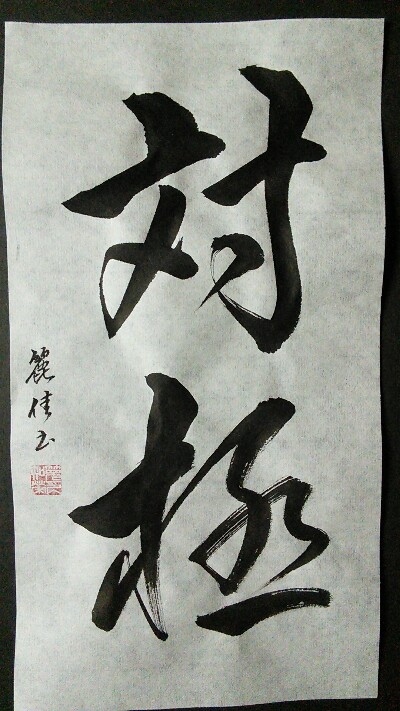 対極
麗佳书